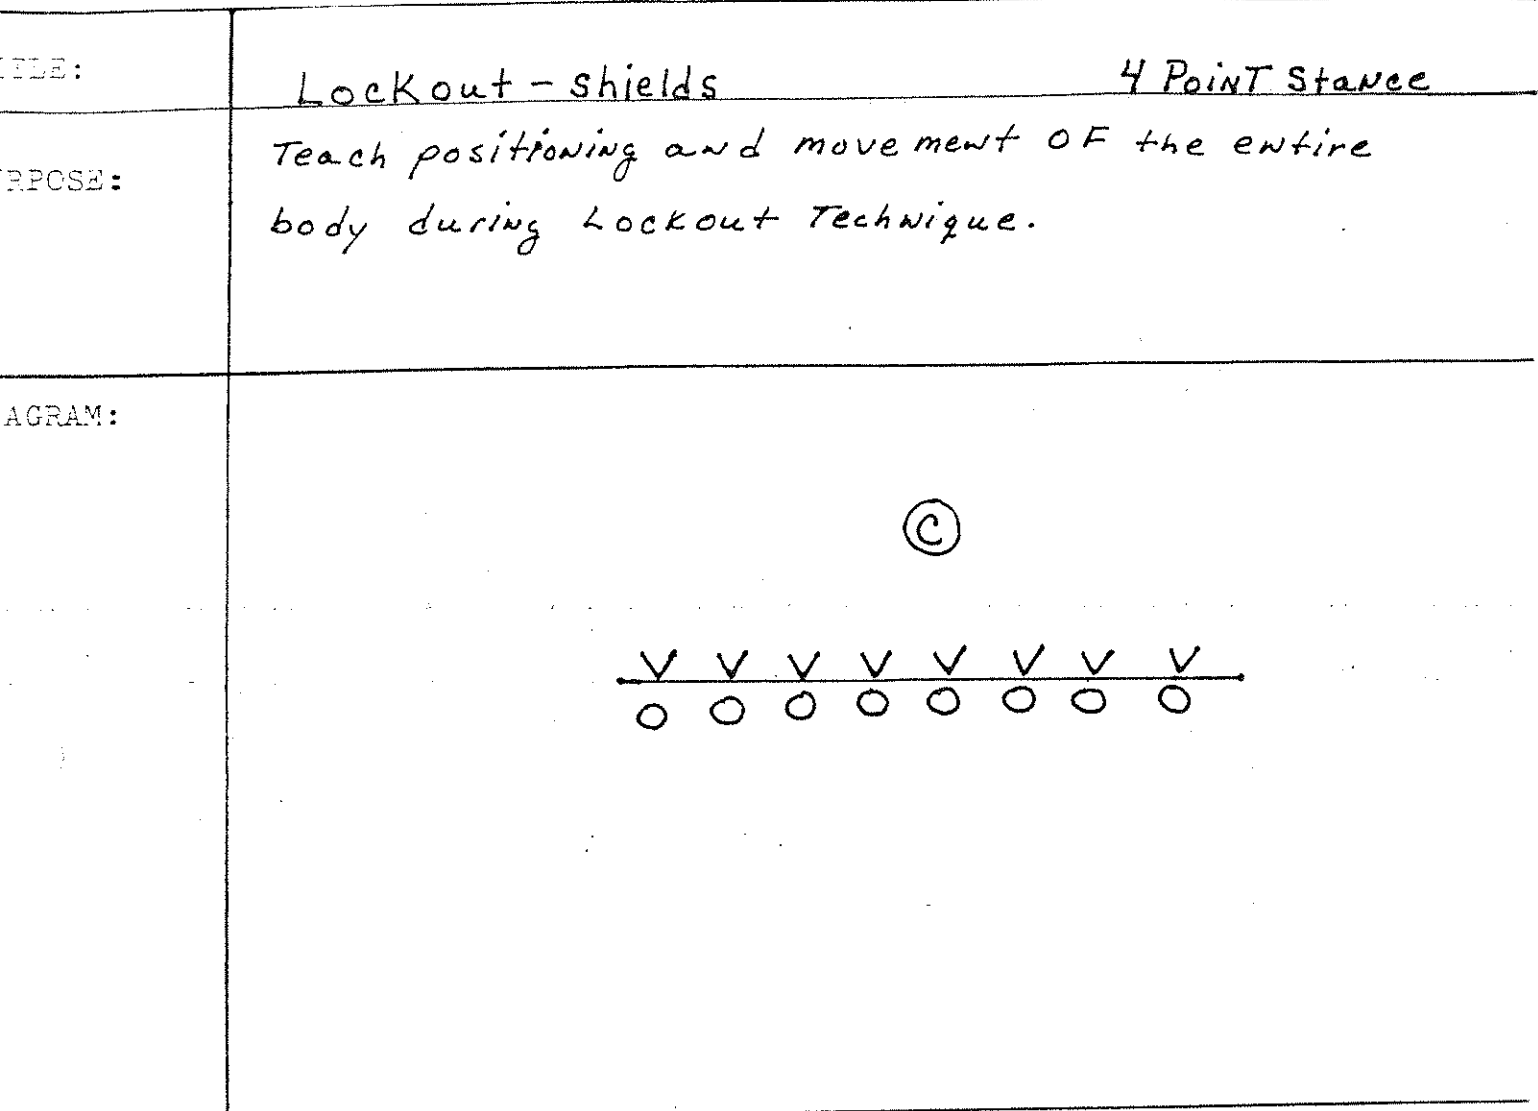 Lockout - Shields 4 Point Stance
Teach positioning and movement OF the entire
RPOSE:
body during Lockout Technique.
AGRAM:
C
V V V V V V V V
O O O O O O O O